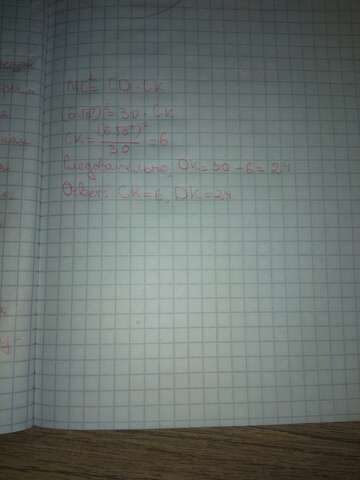 NC² = CD · CK
(6√5)² = 30 · CK
CK = (6√5)² / 30 = 6
Следовательно, DK = 30 - 6 = 24
Ответ: CK = 6, DK = 24